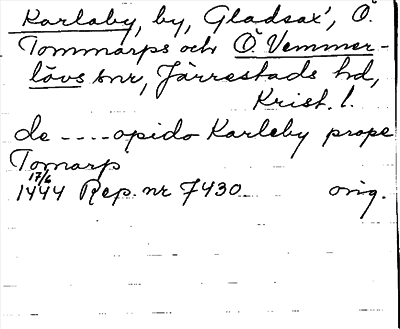 Karlaby, by, Gladsax', Ö.
Tommarps och Ö. Vemmer-
lövs snr, Järrestads hd,
Krist. l.
de ---- opido Karleby prope
Tomarp
17/6
1444 Rep. nr 7430 orig.